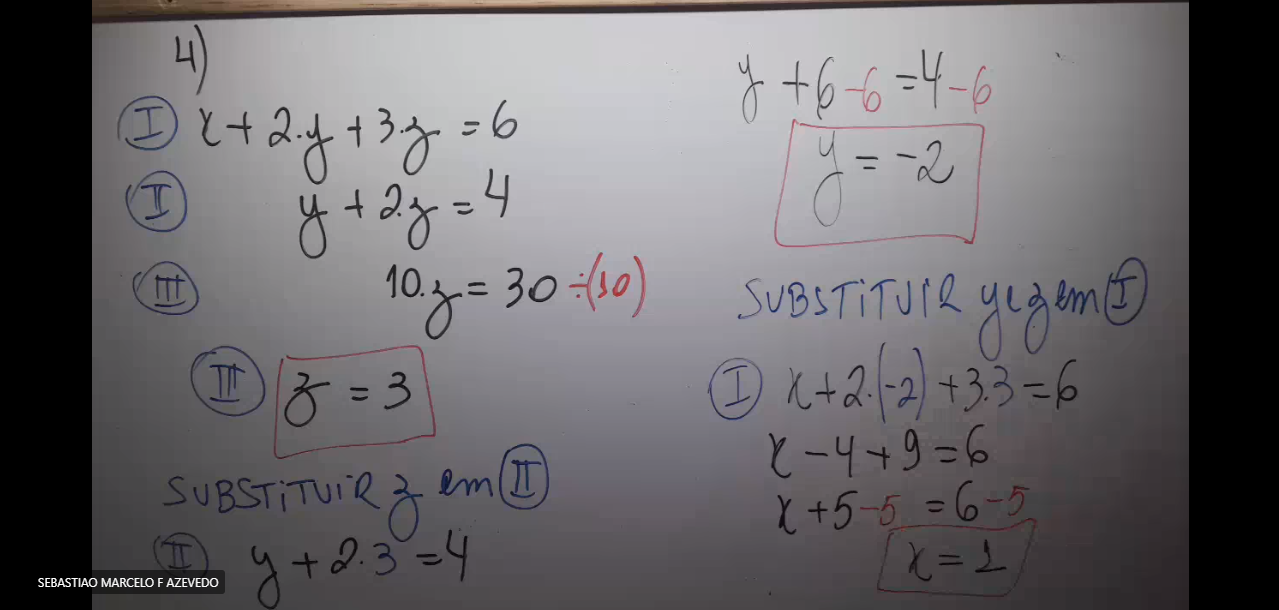 4)
I x + 2.y + 3.z = 6
II y + 2.z = 4
III 10.z = 30 ÷(10)
III z = 3
SUBSTITUIR z em II
II y + 2.3 = 4
y + 6 - 6 = 4 - 6
y = -2
SUBSTITUIR y e z em I
I x + 2.(-2) + 3.3 = 6
x - 4 + 9 = 6
x + 5 - 5 = 6 - 5
x = 1
SEBASTIAO MARCELO F AZEVEDO